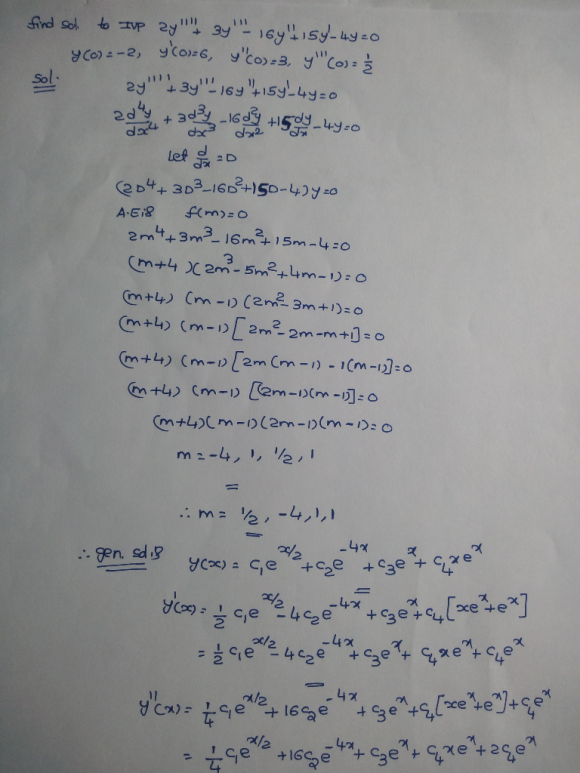 find sol. to IVP 2y'''' + 3y''' - 16y'' + 15y' - 4y = 0
y(0) = -2, y'(0) = 6, y''(0) = 3, y'''(0) = 1/2
Sol.
2y'''' + 3y''' - 16y'' + 15y' - 4y = 0
2 d⁴y/dx⁴ + 3 d³y/dx³ - 16 d²y/dx² + 15 dy/dx - 4y = 0
Let d/dx = D
(2D⁴ + 3D³ - 16D² + 15D - 4)y = 0
A.E is f(m) = 0
2m⁴ + 3m³ - 16m² + 15m - 4 = 0
(m+4)(2m³ - 5m² + 4m - 1) = 0
(m+4)(m-1)(2m² - 3m + 1) = 0
(m+4)(m-1)[2m² - 2m - m + 1] = 0
(m+4)(m-1)[2m(m-1) - 1(m-1)] = 0
(m+4)(m-1)[(2m-1)(m-1)] = 0
(m+4)(m-1)(2m-1)(m-1) = 0
m = -4, 1, 1/2, 1
∴ m = 1/2, -4, 1, 1
∴ gen. sol is y(x) = c₁e^{x/2} + c₂e^{-4x} + c₃e^x + c₄xe^x
y'(x) = 1/2 c₁e^{x/2} - 4c₂e^{-4x} + c₃e^x + c₄[xe^x + e^x]
= 1/2 c₁e^{x/2} - 4c₂e^{-4x} + c₃e^x + c₄xe^x + c₄e^x
y''(x) = 1/4 c₁e^{x/2} + 16c₂e^{-4x} + c₃e^x + c₄[xe^x + e^x] + c₄e^x
= 1/4 c₁e^{x/2} + 16c₂e^{-4x} + c₃e^x + c₄xe^x + 2c₄e^x